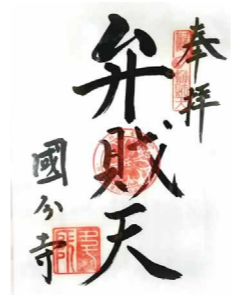 奉拝
弁財天
國分寺